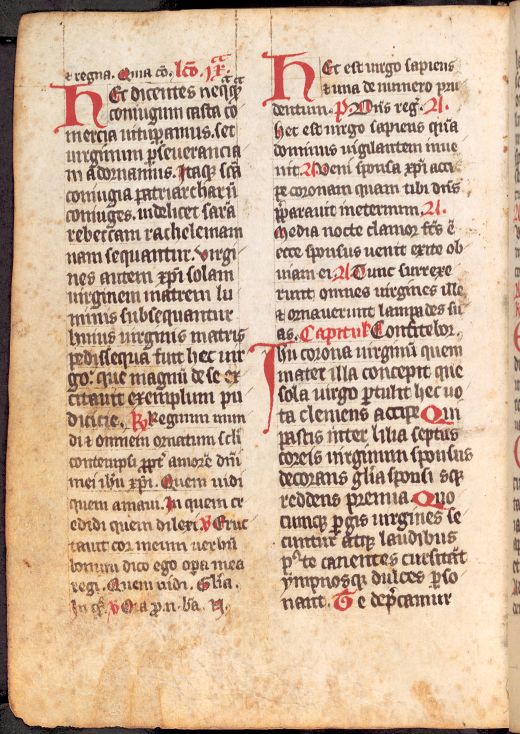 ⁊ regna. Quia cō. lcō. ix.
Het dicentes neq̄ꝫ
coniugum casta co
mercia uitupamus. set
uirginum pseuerancia
m adornamus. Itaqꝫ scā
coniugia patriarcharū
coniuges. uidelicet sarā
rebeccam rachelemam
nam sequantur. Virgi
nes autem xp̄i solam
uirginem matrem lu
minis subsequantur
huius uirginis matris
pedissequa fuit hec uir
go. que magnū de se ex
citauit exemplum pu
dicicie. R̸ Regnum mun
di ⁊ omnem ornatum sc̄li
contempsi ꝓpt̄ amorē dn̄i
mei ihū xp̄i. Quem uidi
quem amaui. In quem cr
edidi quem dilexi. V Eruc
tauit cor meum uerbū
bonum dico ego opa mea
regi. Quem uidi. Gl̄ia.
V Ora ꝓ n. ba.
Hec est uirgo sapiens
⁊ una de numero pru
dentum. P̄s Dn̄s reg̃. A.
Hec est uirgo sapiens quā
dominus uigilantem inue
nit. A Veni sponsa xp̄i acci
pe coronam quam tibi dn̄s
p̄parauit ineternum. A.
Media nocte clamor fc̄s ē
ecce sponsus uenit exite ob
uiam ei. A Tunc surrexe
runt omnes uirgines ille
⁊ ornauerunt lampades su
as. Capitul̄ Confitebor.
Ihū corona virginū quem
mater illa concepit que
sola uirgo ptulit hec uo
ta clemens accipe Qui
pascis inter lilia septus
coreis uirginum sponsus
decorans gl̄ia sponsis qꝫ
reddens premia Quo
cunqꝫ pgis uirgines se
cuntur atqꝫ laudibus
p̄ te canentes cursitāt
ympnosqꝫ dulces pso
nant. Te dep̄camur